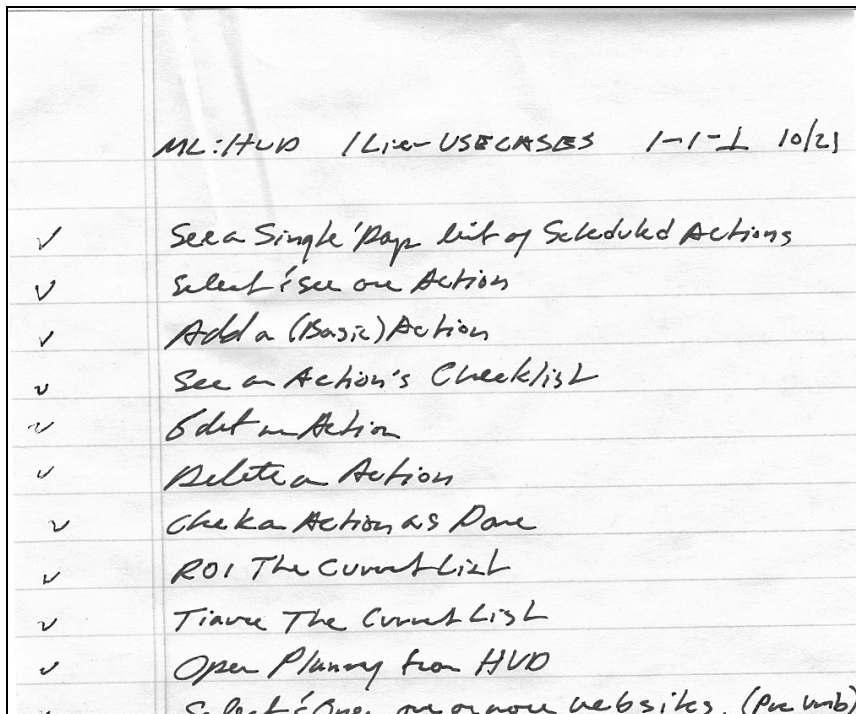 ML:HUD 1 Line-USECASES 1-1-1 10/21
✓ See a Single Day list of Scheduled Actions
✓ Select & See one Action
✓ Add a (Basic) Action
✓ See an Action's Checklist
✓ Edit an Action
✓ Delete an Action
✓ Check an Action as Done
✓ ROI The Current List
✓ The Current List
✓ Open Planning from HUD
✓ Select & Open one or more websites.